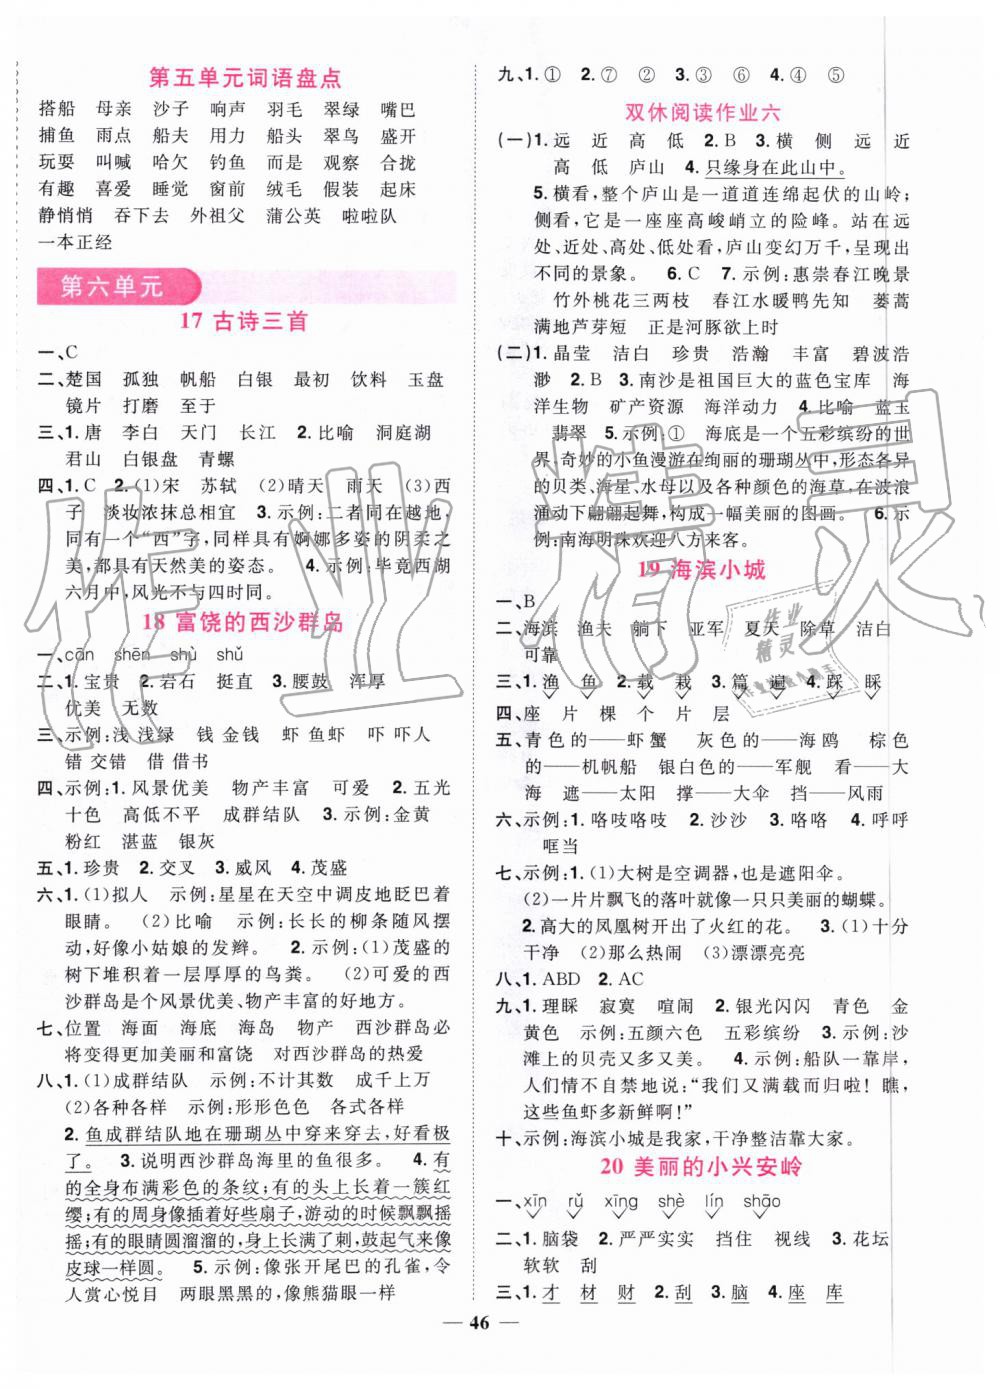 第五单元词语盘点
搭船 母亲 沙子 响声 羽毛 翠绿 嘴巴
捕鱼 雨点 船夫 用力 船头 翠鸟 盛开
玩耍 叫喊 哈欠 钓鱼 而是 观察 合拢
有趣 喜爱 睡觉 窗前 绒毛 假装 起床
静悄悄 吞下去 外祖父 蒲公英 啦啦队
一本正经
第六单元
17 古诗三首
一、C
二、楚国 孤独 帆船 白银 最初 饮料 玉盘
镜片 打磨 至于
三、1.唐 李白 天门 长江 2.比喻 洞庭湖
君山 白银盘 青螺
四、1.C 2.(1)宋 苏轼 (2)晴天 雨天 (3)西
子 淡妆浓抹总相宜 3.示例:二者同在越地,
同有一个“西”字,同样具有婀娜多姿的阴柔之
美,都具有天然美的姿态。 4.示例:毕竟西湖
六月中,风光不与四时同。
18 富饶的西沙群岛
一、cān shēn shù shǔ
二、1.宝贵 2.岩石 挺直 3.腰鼓 浑厚
优美 无数
三、示例:浅 浅绿 钱 金钱 虾 鱼虾 吓 吓人
错 交错 借 借书
四、示例:1.风景优美 物产丰富 可爱 2.五光
十色 高低不平 成群结队 3.示例:金黄
粉红 湛蓝 银灰
五、1.珍贵 2.交叉 3.威风 4.茂盛
六、1.(1)拟人 示例:星星在天空中调皮地眨巴着
眼睛。 (2)比喻 示例:长长的柳条随风摆
动,好像小姑娘的发辫。 2.示例:(1)茂盛的
树下堆积着一层厚厚的鸟粪。 (2)可爱的西
沙群岛是个风景优美、物产丰富的好地方。
七、位置 海面 海底 海岛 物产 西沙群岛必
将变得更加美丽和富饶 对西沙群岛的热爱
八、1.(1)成群结队 示例:不计其数 成千上万
(2)各种各样 示例:形形色色 各式各样
2.鱼成群结队地在珊瑚丛中穿来穿去,好看极
了。 3.说明西沙群岛海里的鱼很多。 4.有
的全身布满彩色的条纹;有的头上长着一簇红
缨;有的周身像插着好些扇子,游动的时候飘飘摇
摇;有的眼睛圆溜溜的,身上长满了刺,鼓起气来像
皮球一样圆。 5.示例:像张开尾巴的孔雀,令
人赏心悦目 两眼黑黑的,像熊猫眼一样
九、1.① 2.⑦ ② ⑥ 3.④ 4.④ ⑤
双休阅读作业六
(一)1.远 近 高 低 2.B 3.横 侧 远 近
高 低 庐山 4.只缘身在此山中。
5.横看,整个庐山是一道道连绵起伏的山岭;
侧看,它是一座座高峻峭立的险峰。站在远
处、近处、高处、低处看,庐山变幻万千,呈现出
不同的景象。 6.C 7.示例:惠崇春江晚景
竹外桃花三两枝 春江水暖鸭先知 蒌蒿
满地芦芽短 正是河豚欲上时
(二)1.晶莹 洁白 珍贵 浩瀚 丰富 碧波浩
渺 2.B 3.南沙是祖国巨大的蓝色宝库 海
洋生物 矿产资源 海洋动力 4.比喻 蓝玉
翡翠 5.示例:① 海底是一个五彩缤纷的世
界,奇妙的小鱼漫游在绚丽的珊瑚丛中,形态各异
的贝类、海星、水母以及各种颜色的海草,在波浪
涌动下翩翩起舞,构成一幅美丽的图画。 6.示
例:南海明珠欢迎八方来客。
19 海滨小城
一、B
二、海滨 渔夫 躺下 亚军 夏天 除草 洁白
可靠
三、1.渔 鱼 2.载 栽 3.篇 遍 4.踩 睬
四、座 片 棵 个 片 层
五、青色的——虾蟹 灰色的——海鸥 棕色
的——机帆船 银白色的——军舰 看——大
海 遮——太阳 撑——大伞 挡——风雨
六、示例:1.咯吱咯吱 2.沙沙 3.咯咯 4.呼呼
哐当
七、示例:1.(1)大树是空调器,也是遮阳伞。
(2)一片片飘飞的落叶就像一只只美丽的蝴蝶。
2.高大的凤凰树开出了火红的花。 3.(1)十分
干净 (2)那么热闹 (3)漂漂亮亮
八、1.ABD 2.AC
九、1.理睬 寂寞 喧闹 2.银光闪闪 青色 金
黄色 示例:五颜六色 五彩缤纷 3.示例:沙
滩上的贝壳又多又美。 4.示例:船队一靠岸,
人们情不自禁地说:“我们又满载而归啦!瞧,
这些鱼虾多新鲜啊!”
十、示例:海滨小城是我家,干净整洁靠大家。
20 美丽的小兴安岭
一、xīn rǔ xīng shè lín shāo
二、1.脑袋 2.严严实实 挡住 视线 3.花坛
软软 刮
三、1.才 材 财 2.刮 乱 3.脑 恼 4.座 库
46
作业精灵
作业精灵